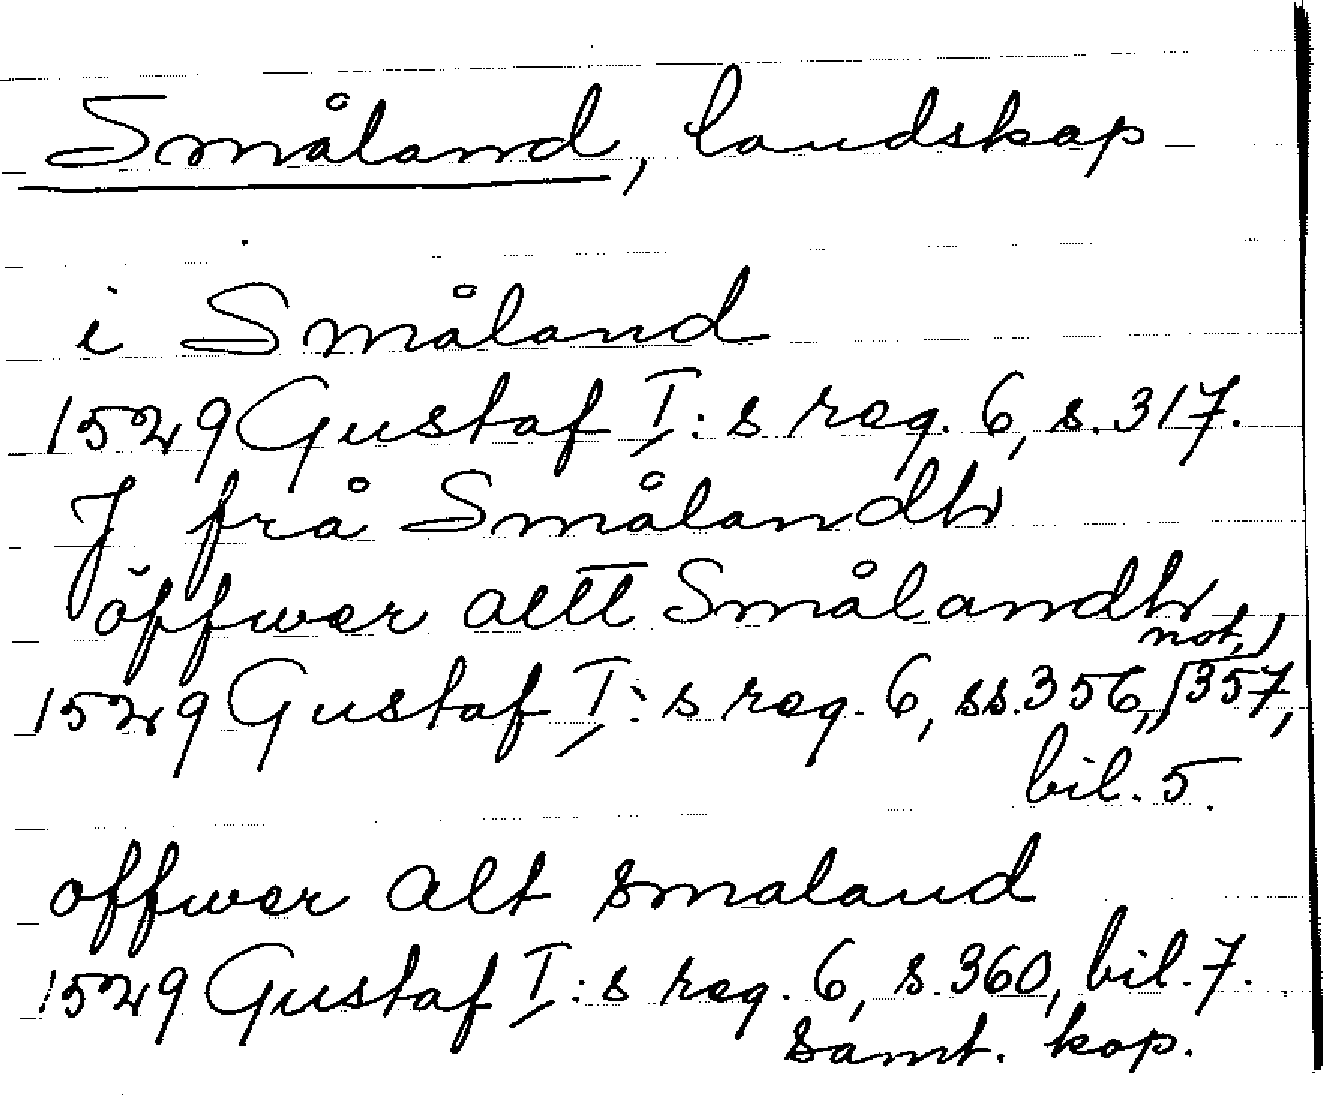 Småland, landskap
i Småland
1529 Gustaf I:s reg. 6, s. 317.
J frå Smålandh
öffwer altt Smålandh,
1529 Gustaf I:s reg. 6, ss. 356, not, 357,
bil. 5.
offwer alt smaland
1529 Gustaf I:s reg. 6, s. 360, bil. 7.
samt. kop.